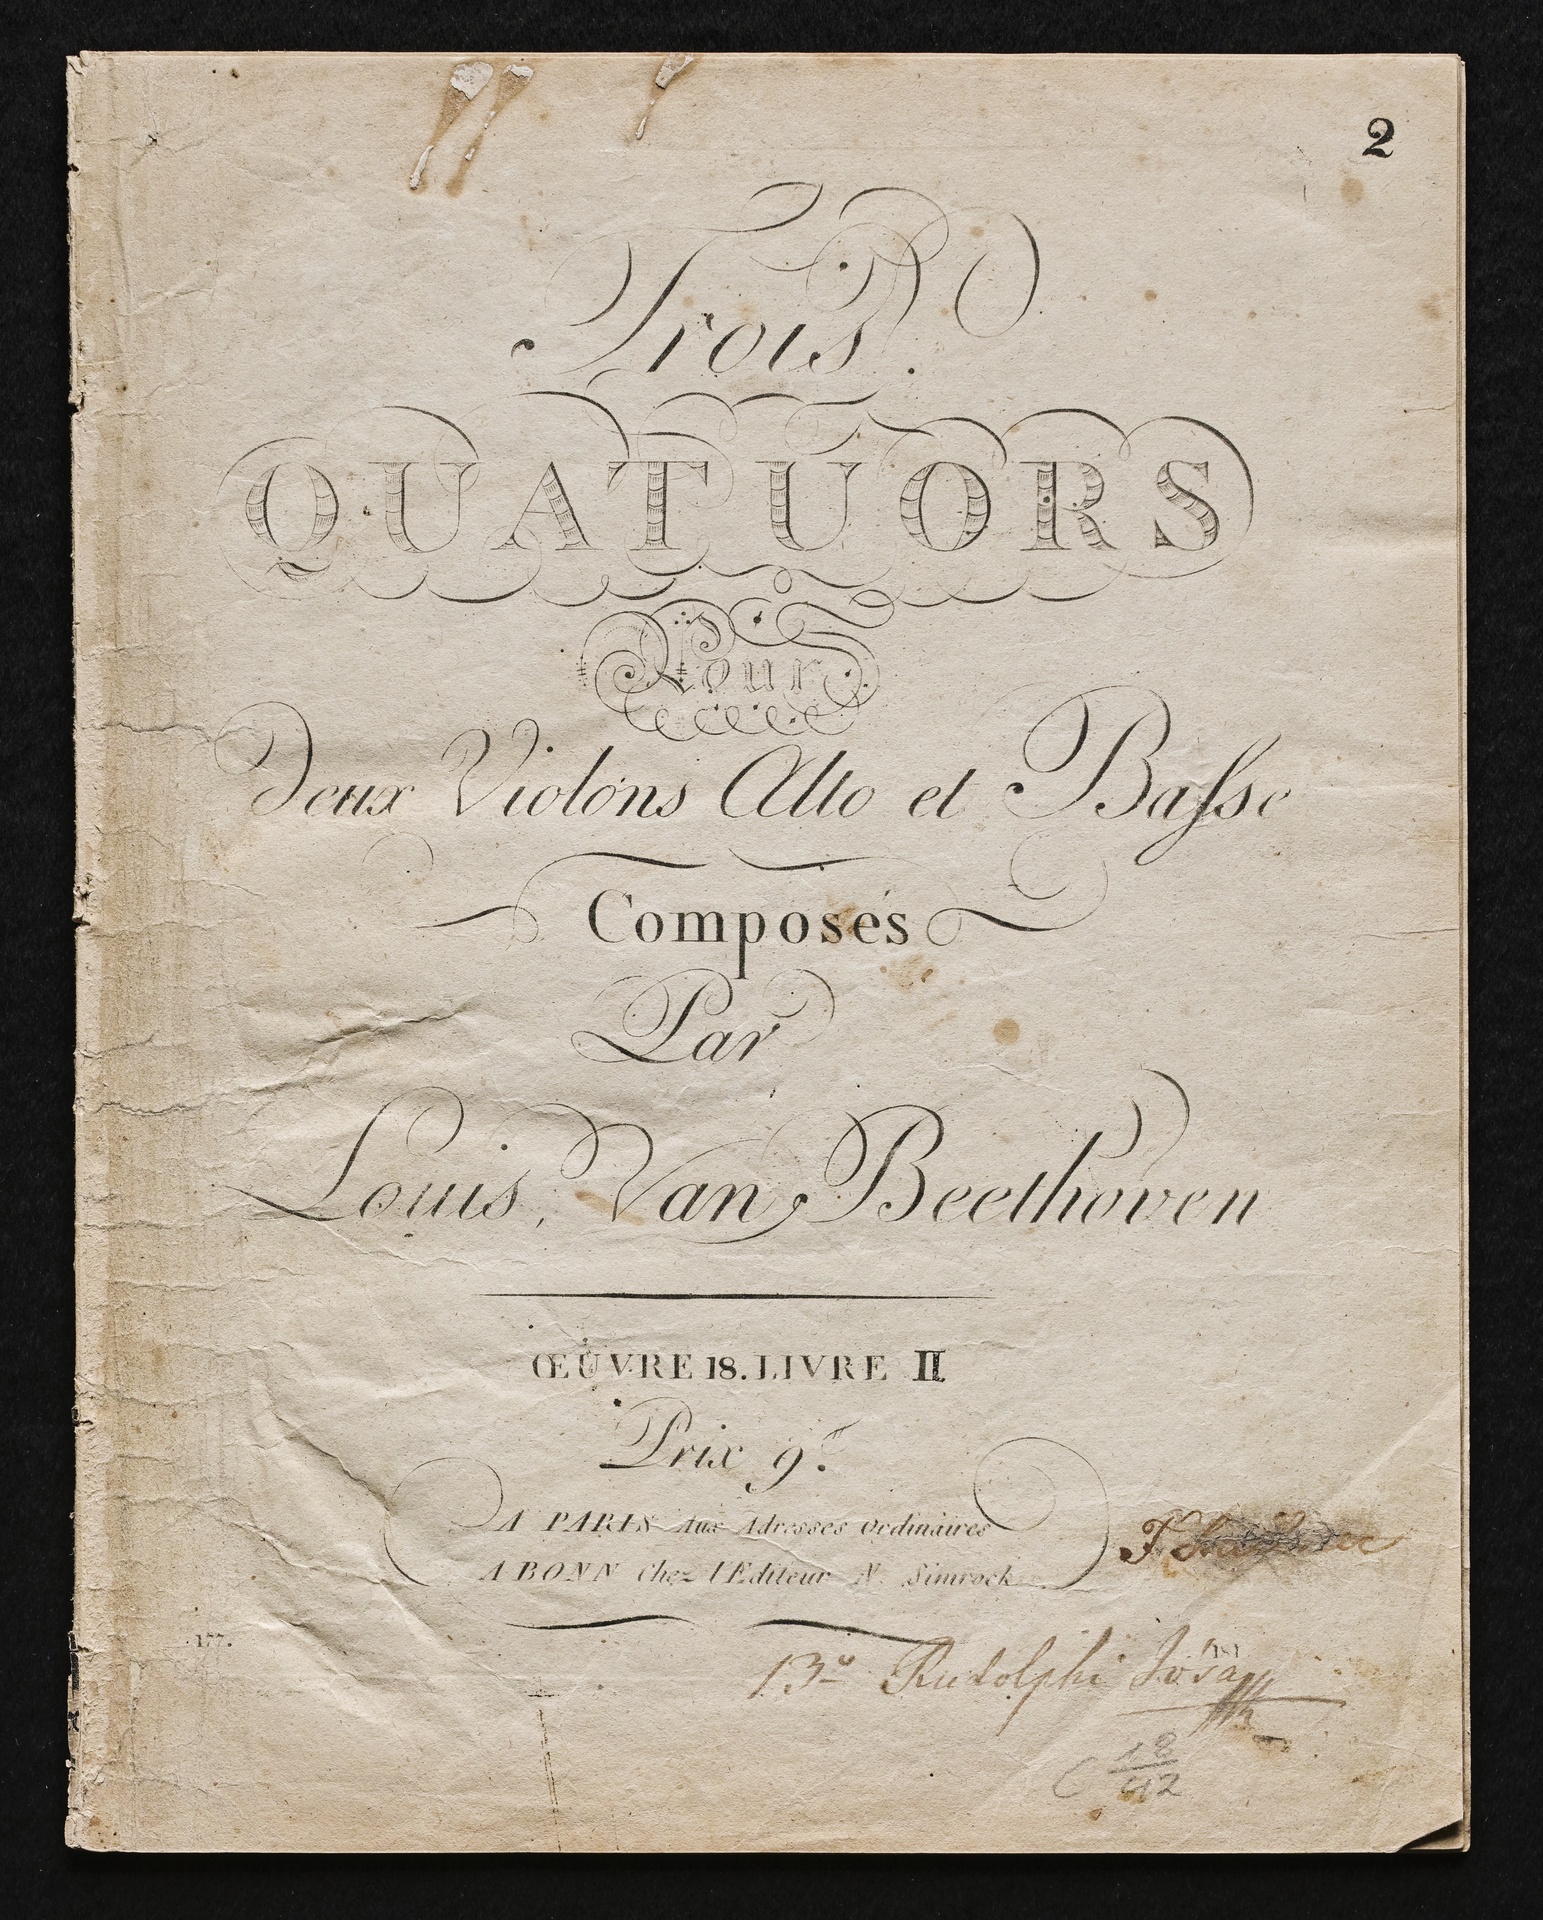 2
Trois
QUATUORS
Pour
Deux Violons Alto et Basse
Composés
Par
Louis, Van Beethoven
ŒUVRE 18. LIVRE II.
Prix 9.f
A PARIS Aux Adresses Ordinaires
A BONN Chez l'Editeur N. Simrock
177.
181
13 Rudolphi
C 12